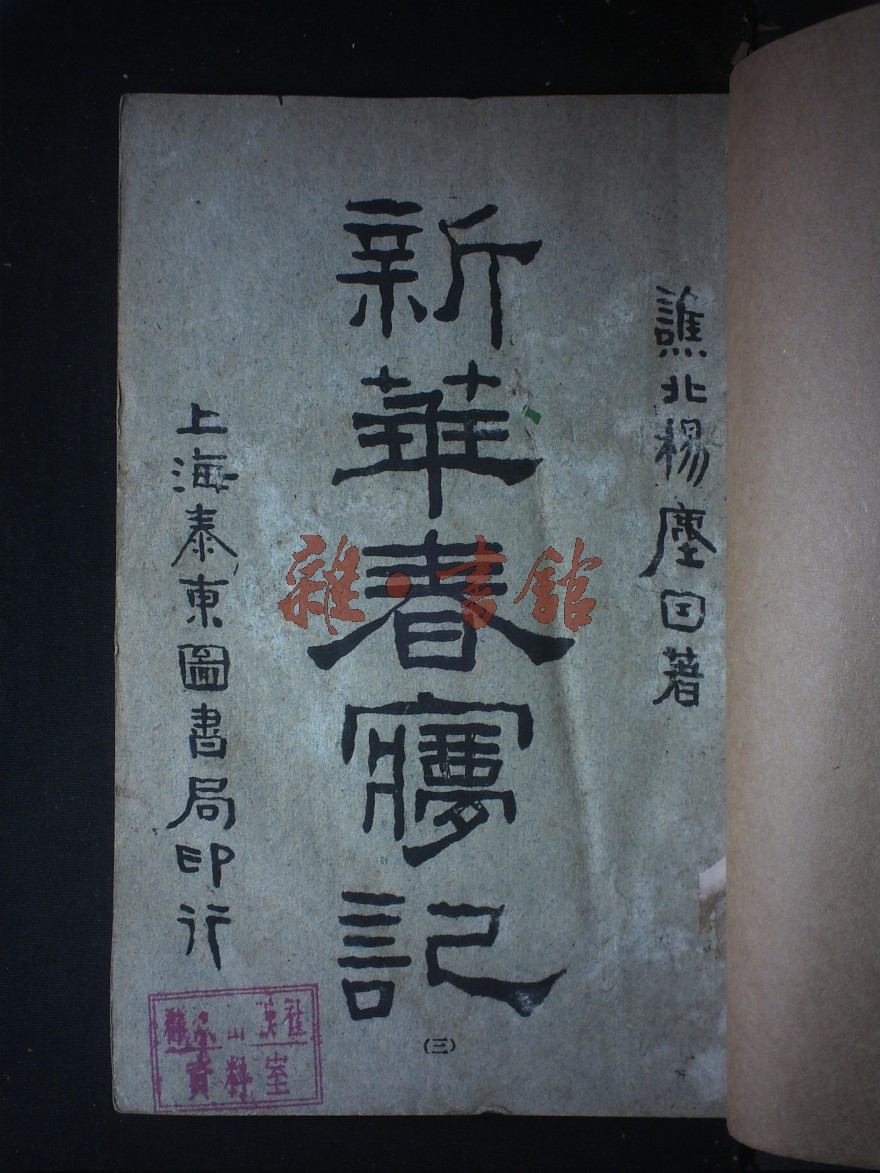 譙北楊塵因著
新華春夢記
(三)
上海泰東圖書局印行
雜·書館
資料室